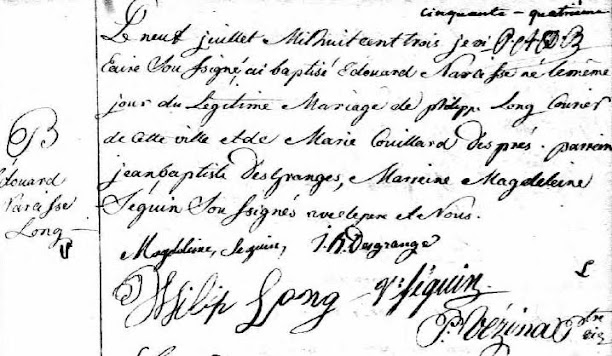 cinquante - quatrième
Le neuf juillet Mil huit cent trois je
Sous signé ai baptisé Edouard Narcisse né le même
jour du Légitime Mariage de philippe Long Courier
de cette ville et de Marie Couillard des prés. parrein
jean baptiste Des Granges, Marreine Magdeleine
Séguin Sous signés avec le pere et Nous.
B
Edouard
Narcisse
Long
Magdeleine, Seguin, J. B. Desgrange
Philip Long Séguin
P. Vézina Ptre